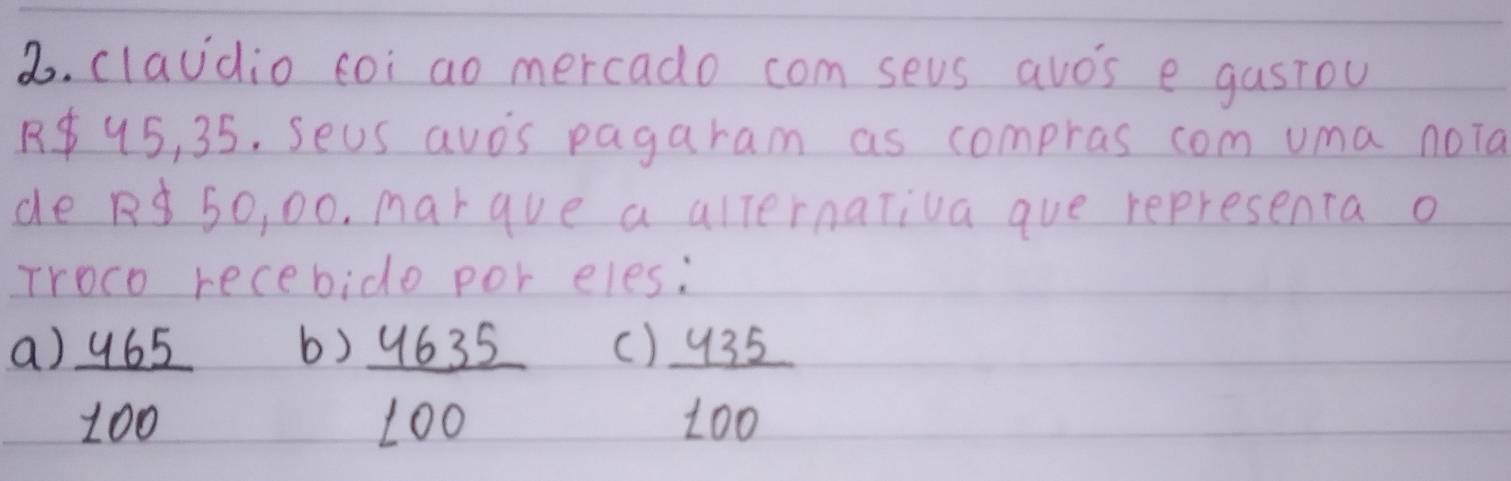 2. claúdio foi ao mercado com seus avós e gastou
R$ 45,35. seus avós pagaram as compras com uma nota
de R$ 50,00. marque a alternativa que representa o
troco recebido por eles:
a) 465 b) 4635 c) 435
100 100 100